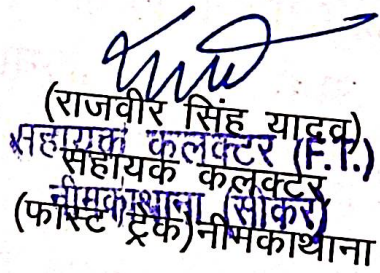 (राजवीर सिंह यादव)
सहायक कलक्टर (F.T.)
सहायक कलक्टर,
नीमकाथाना (सीकर)
(फास्ट ट्रेक)नीमकाथाना